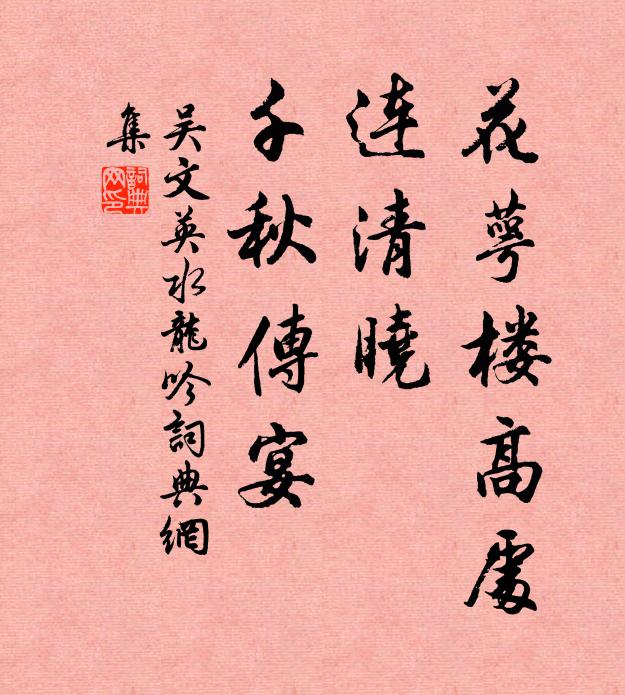 花萼楼高處
連清曉
千秋傳宴
吴文英水龍吟詞典網
集
詞典网印